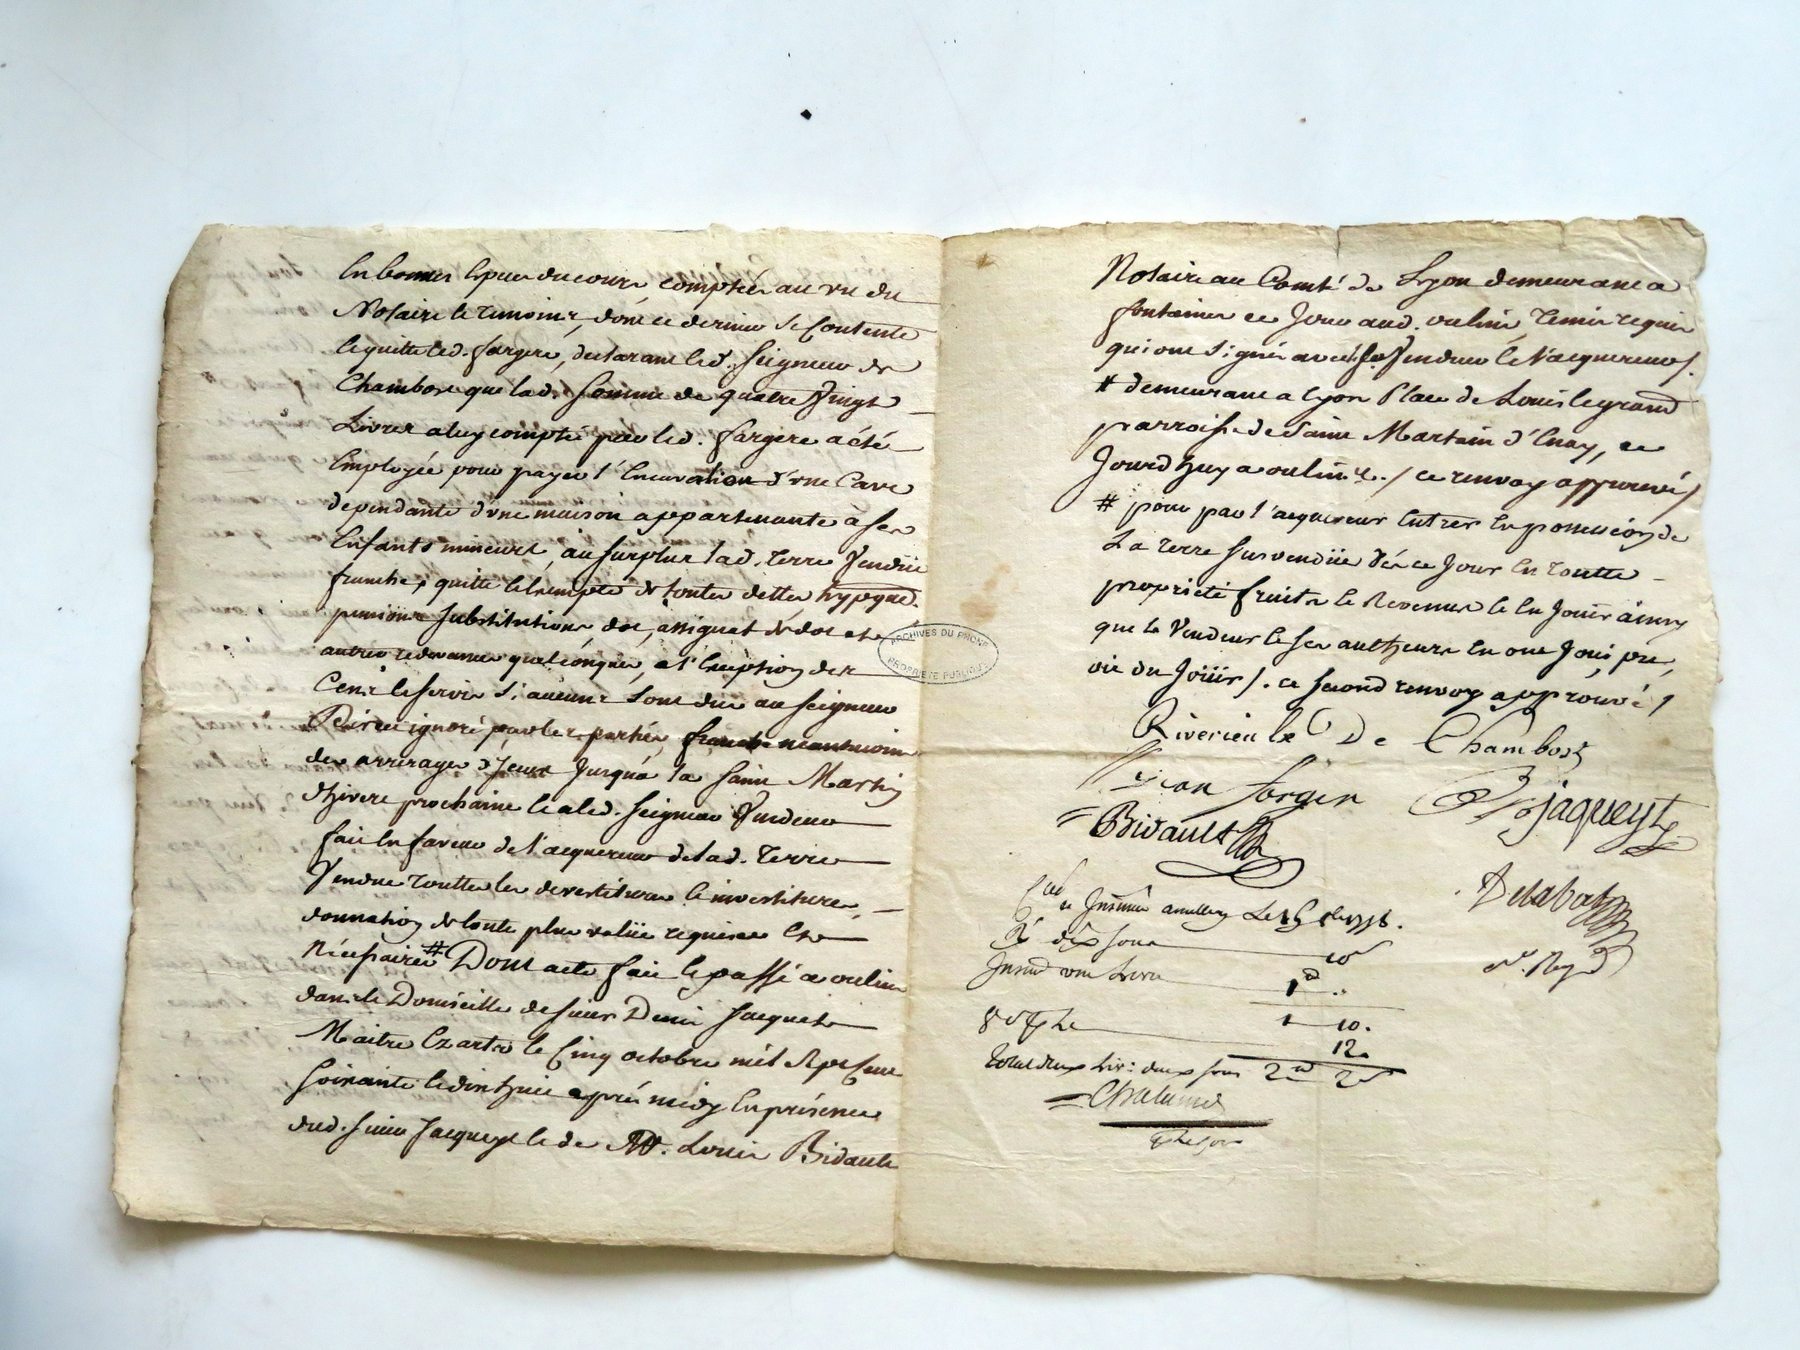 En bonnes Especes du cours comptées au vû du
Notaire et temoins, dont ce dernier se Contente
et quitte led. fargere, declarant led. Seigneur de
Chambost que lad. Somme de quatre Vingt
Livres a luy comptée par led. fargere a été
Employée pour payer l'Encuvation d'une Cave
dependante d'une maison appartenante à ses
Enfants mineurs, au surplus lad. terre Vendüe
franche, quitte et Exempte de toutes dettes hypeque.
pensions substitutions, dot, assignat de dot et
autres redevances quelconques, à l'Exeption des
Cens et servis si aucuns sont dus au Seigneur
Direct ignoré par les parties, franche neantmoins
des arrerages d'yceux jusqu'a la Saint Martin
d'hivert prochaine et a led. Seigneur Vendeur
fait En faveur de l'acquereur de lad. Terre
Vendue toutes les devestitures et investitures,
donnation de toute plus valüe requises Et
Nécessaires # Dont acte fait et passé a oulins
dans le Domicille de sieur Denis Jacquet
Maitre Ez arts le Cinq octobre mil Sept Cent
soixante et dix huit après midy En présence
dud. sieur Jacqueyt et de Me. Louis Bidault
ARCHIVES DU RHONE
PROPRIETE PUBLIQUE
Notaire au Comté de Lyon demeurant a
fontaines ce jour aud. oulins, temins requis
qui ont signés avec led. Sr. Vendeur et l'acquereur /.
# demeurant a Lyon Place de Louis le grand
parroisse de Saint Martain d'Enay, ce
Jourd'huy a oulins. / ce renvoy approuvé /
# pour par l'acquereur Entrer En possession de
La terre sus vendüe dès ce Jour En toutte
proprieté fruits et Revenus et En Joüir ainsy
que le Vendeur et ses autheurs En ont Joüi, pu,
ou du Joüir /. ce second renvoy approuvé /
Riverieulx De Chambost
Jean fargin
Jaqueyt
Bidault
Delabat
Insinué Le 15 8bre 1778.
Rs dix sous 10s
Insin. une Livre 1# ..
1 10.
12.
total deux Liv: deux sous 2# 2s
Chalumet